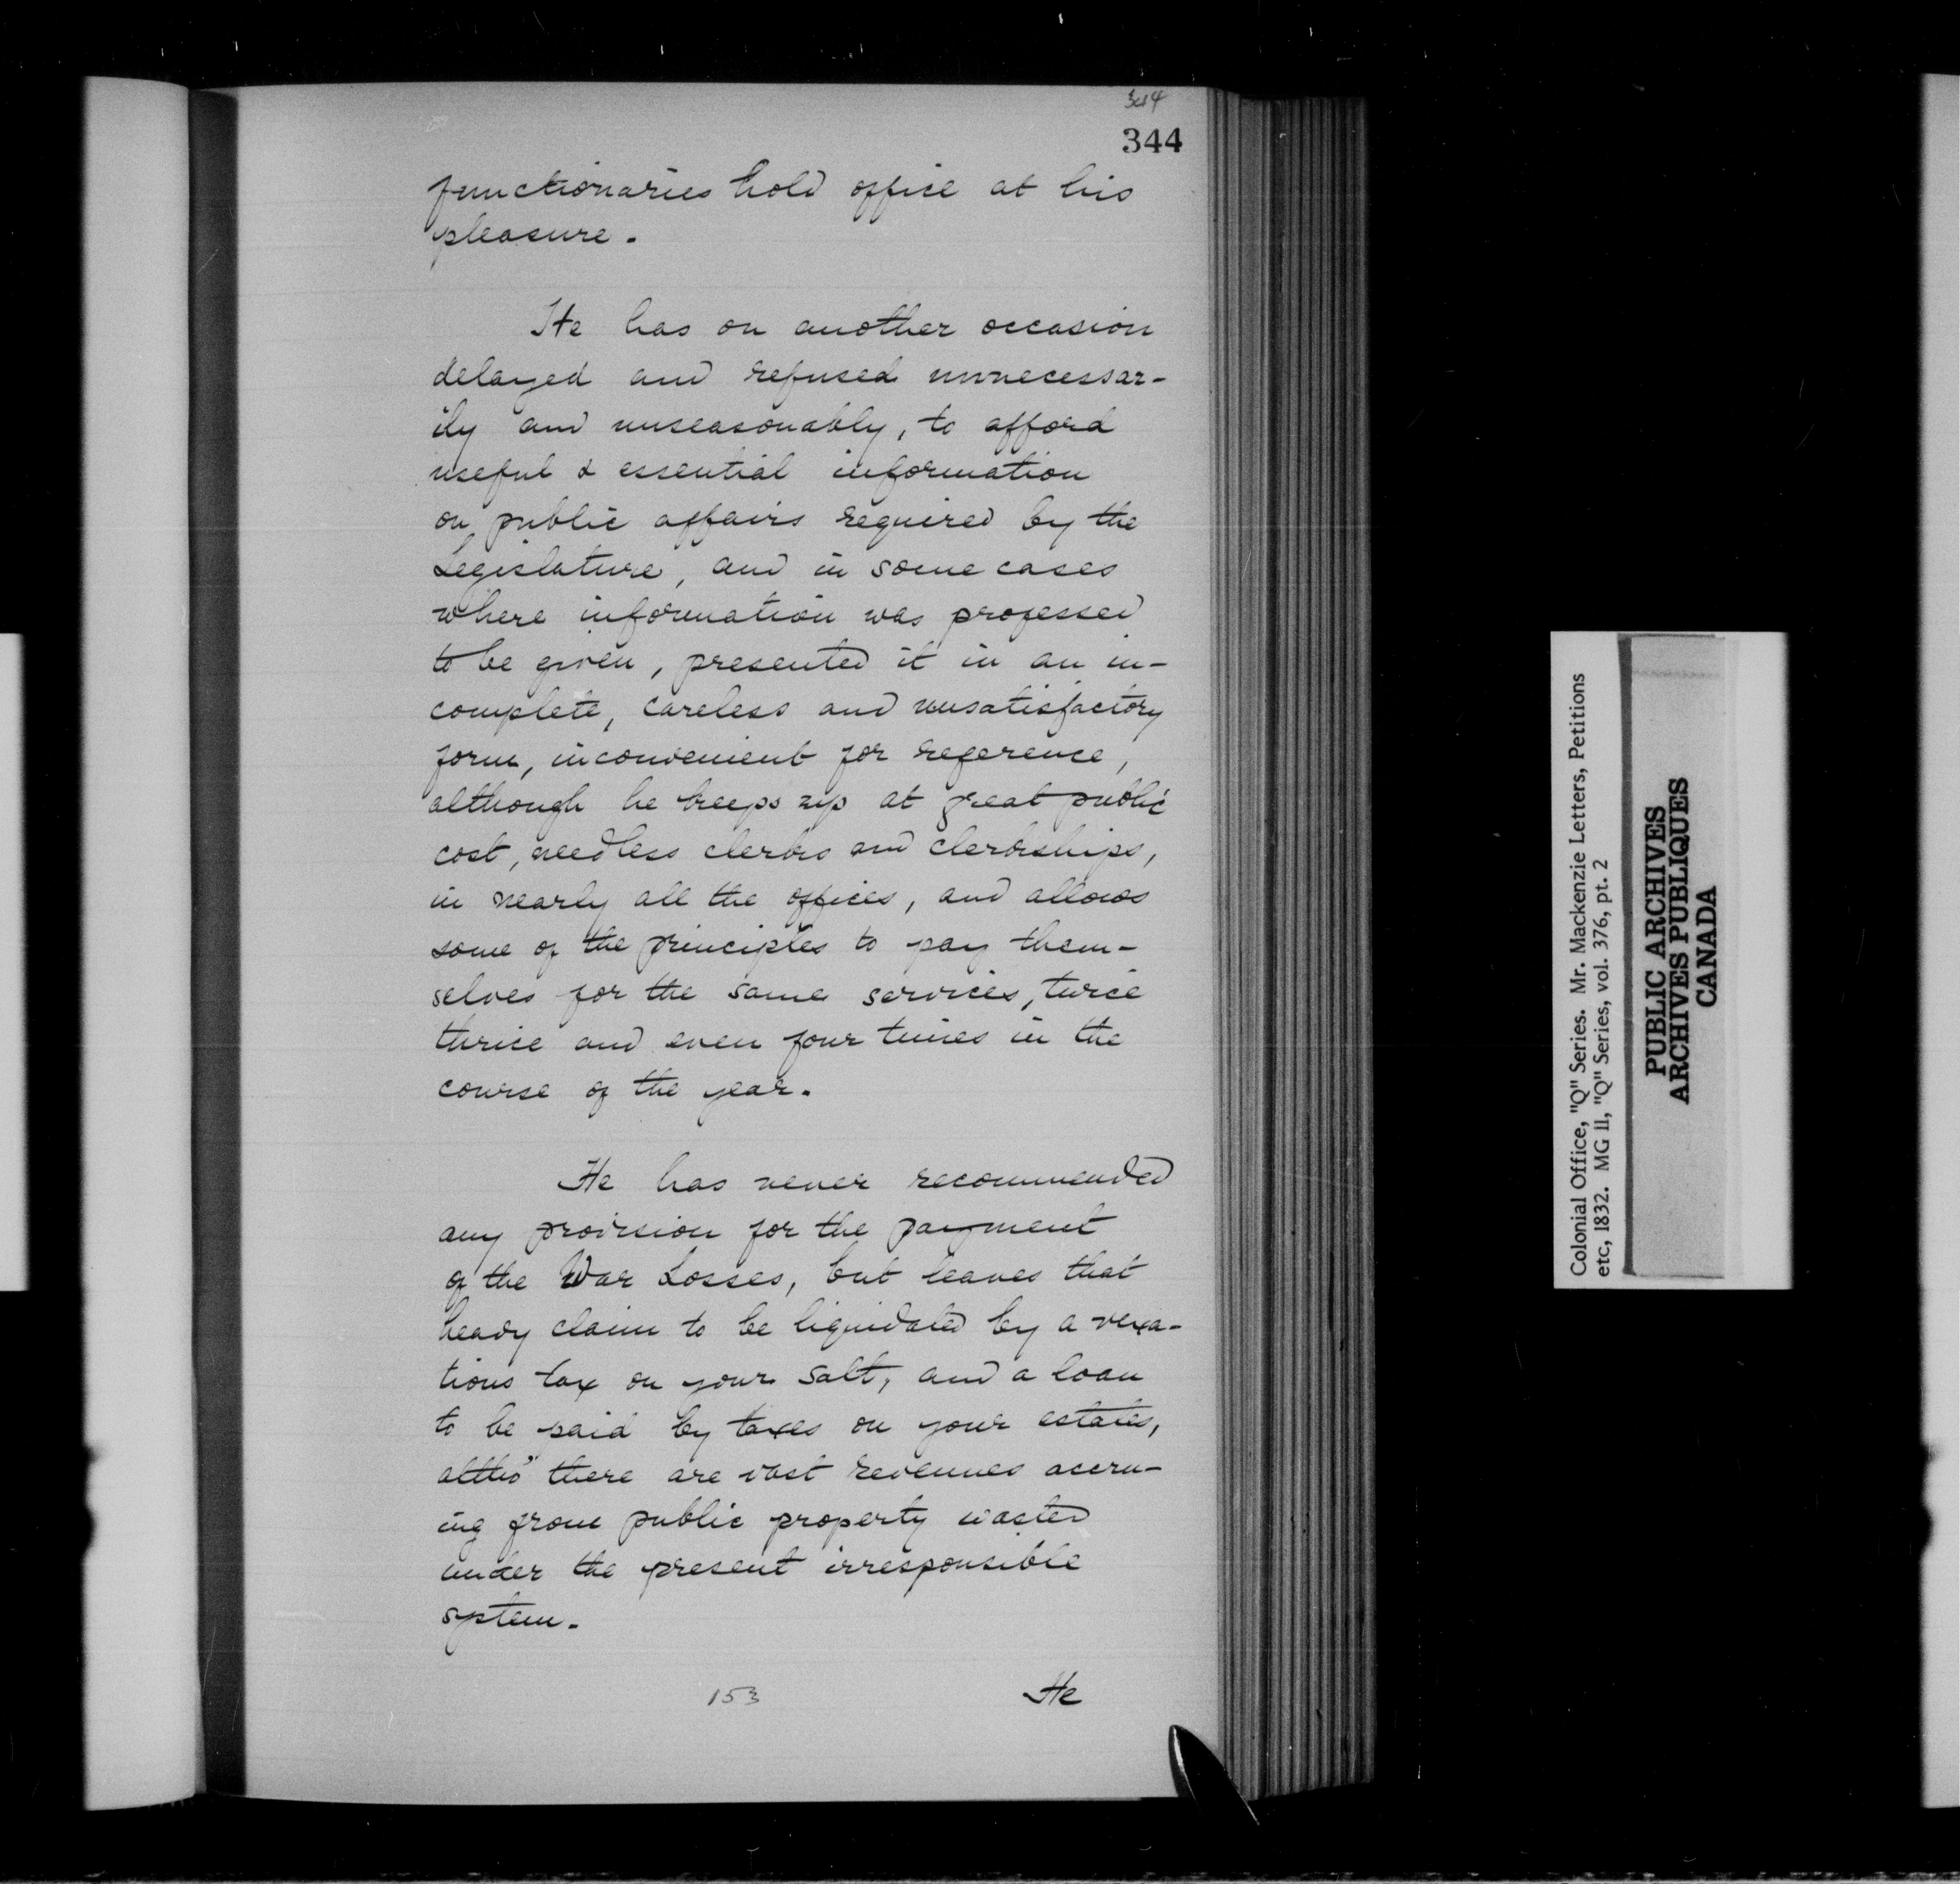 344
344
functionaries hold office at his
pleasure.
He has on another occasion
delayed and refused unnecessar-
ily and unseasonably, to afford
useful & essential information
on public affairs required by the
Legislature, and in some cases
where information was professed
to be given, presented it in an in-
complete, careless and unsatisfactory
form, inconvenient for reference,
although he keeps up at great public
cost, needless clerks and clerkships,
in nearly all the offices, and allows
some of the principles to pay them-
selves for the same services, twice
thrice and even four times in the
course of the year.
He has never recommended
any provision for the payment
of the War Losses, but leaves that
heavy claim to be liquidated by a vexa-
tious tax on your salt, and a loan
to be paid by taxes on your estates,
altho' there are vast revenues accru-
ing from public property wasted
under the present irresponsible
system.
153 He
Colonial Office, "Q" Series. Mr. Mackenzie Letters, Petitions
etc, 1832. MG 11, "Q" Series, vol. 376, pt. 2
PUBLIC ARCHIVES
ARCHIVES PUBLIQUES
CANADA